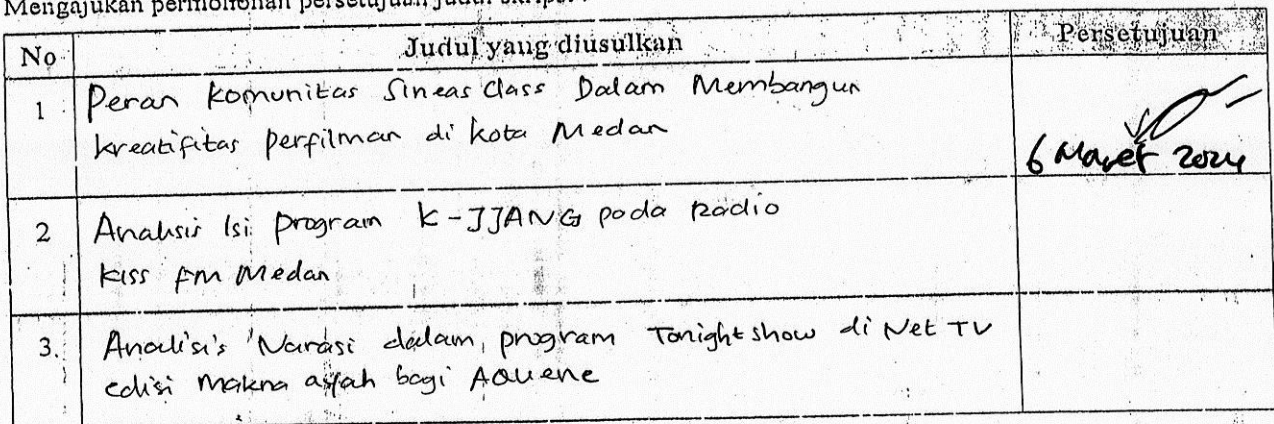 Mengajukan permohonan persetujuan judul skripsi :
No Judul yang diusulkan Persetujuan
1 Peran komunitas Sineas Class Dalam Membangun
kreatifitas perfilman di kota Medan
6 Maret 2024
2 Analisis Isi program K-JJANG pada Radio
KISS FM Medan
3. Analisis Narasi dalam program Tonightshow di Net TV
edisi makna ayah bagi